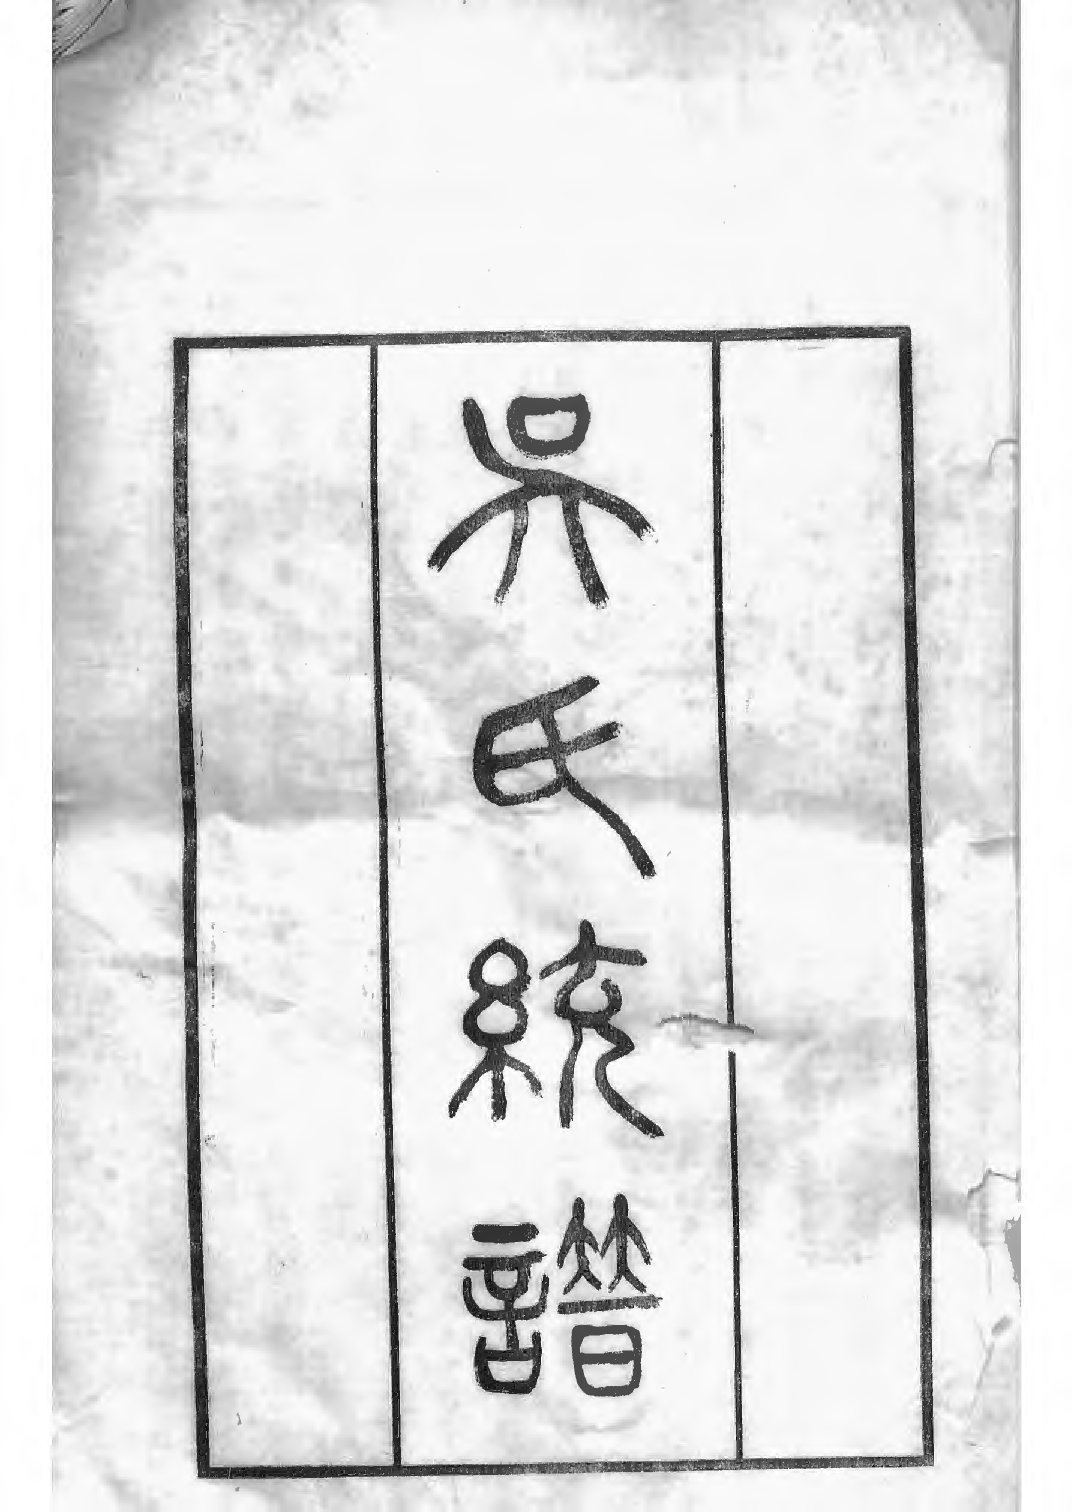 吳氏統譜